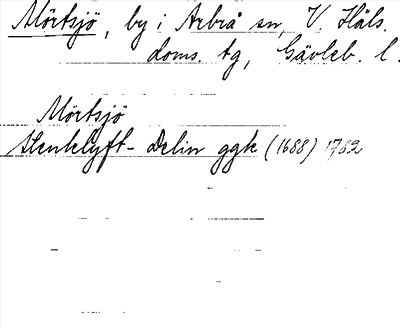 Mörtsjö, by i Arbrå sn, V. Häls.
doms. tg, Gävleb. l.
Mörtsjö
Stenklyft-Delin ggk (1688) 1782